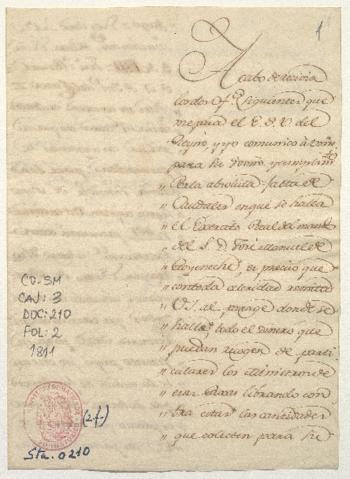 1
Acabo de recivir
los dos Of.s siguientes que
me pasa el E. S. V. del
Reyno, y yo comunico à
para su
" Por la absoluta falta de
" Caudales en que se halla
" el Exercito Real del mando
" del S. D. José Manuel de
" Goyeneche, es preciso que
" con toda alceridad remita
" VS. al parage donde se
" halla todo el dinero que
" puedan recoger de parti
" culares los Administra de
" esas Caxas librando con
" tra estas las cantidades
" que colecten para su
CO-SM
CAJ: 3
DOC: 210
FOL: 2
1811
(2 f.)
Sta. 0210